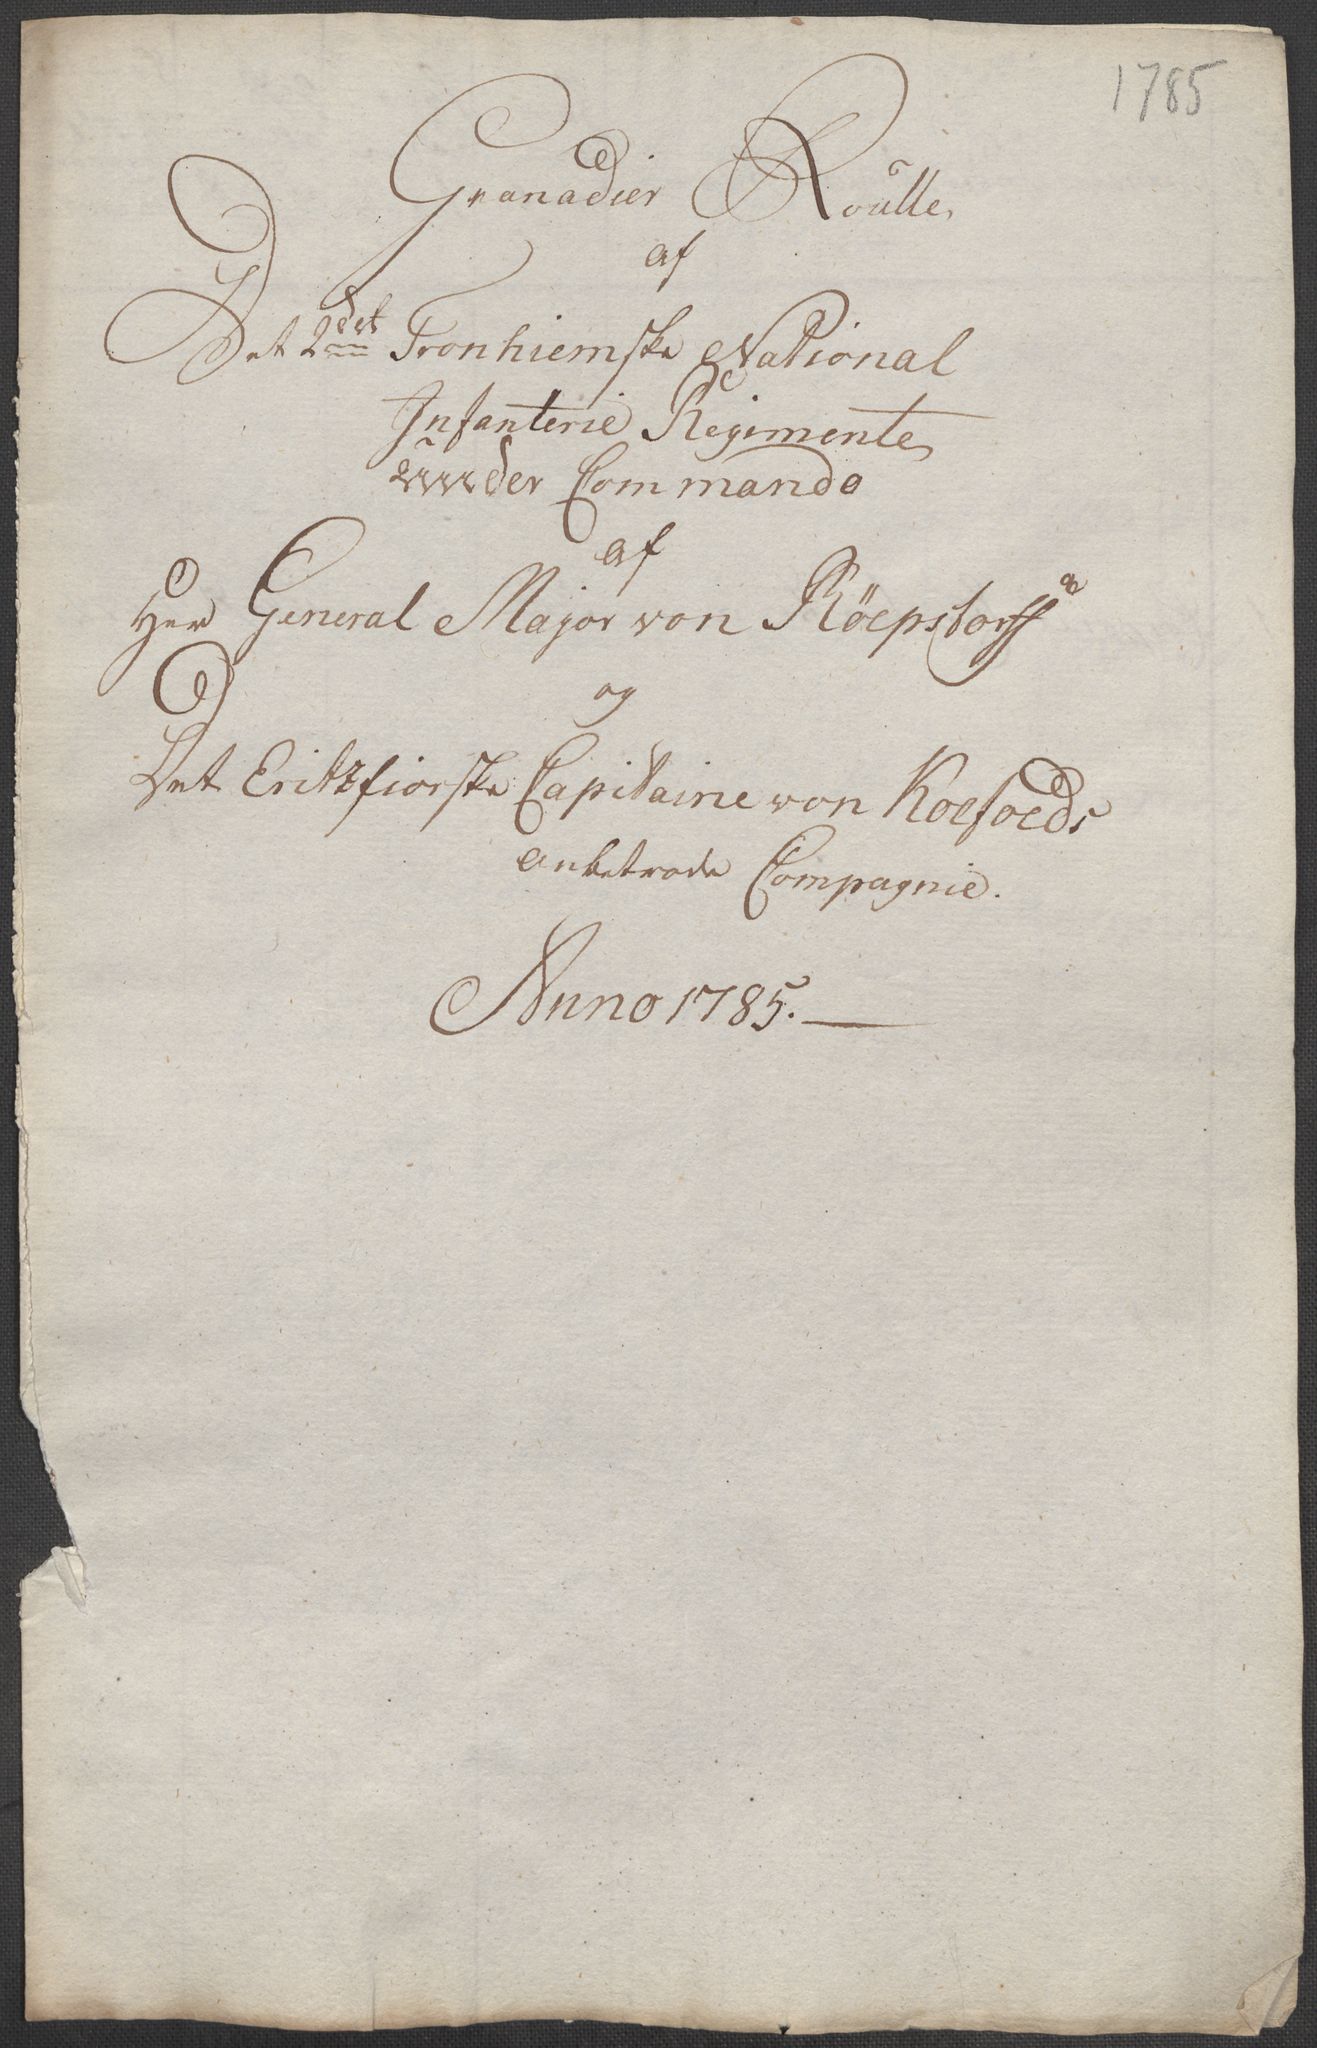 1785
Granadier Roulle
af
Det 2det Tronhiemske National
Infanterie Regimente
under Commando
af
Herr General Major von Röepstorff
og
Det Eritzfiorske Capitaine von Koefoeds
anbetrode Compagnie.
Anno 1785.